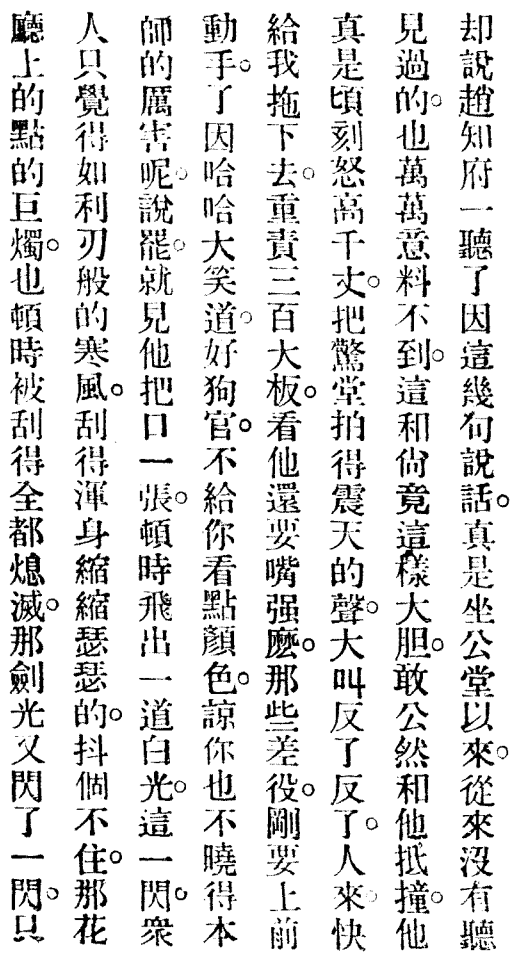 却說趙知府一聽了因這幾句說話。真是坐公堂以來。從來沒有聽
見過的。也萬萬意料不到。這和尙竟這樣大胆。敢公然和他抵撞。他
真是頃刻怒高千丈。把驚堂拍得震天的聲。大叫反了反了。人來快
給我拖下去。重責三百大板。看他還要嘴强麽。那些差役。剛要上前
動手。了因哈哈大笑道。好狗官。不給你看點顏色。諒你也不曉得本
師的厲害呢。說罷。就見他把口一張。頓時飛出一道白光。這一閃。衆
人只覺得如利刃般的寒風。刮得渾身縮縮瑟瑟的。抖個不住。那花
廳上的點的巨燭。也頓時被刮得全都熄滅。那劍光又閃了一閃。只